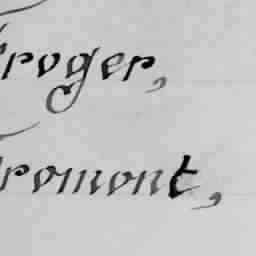 Froger,
Fromont,